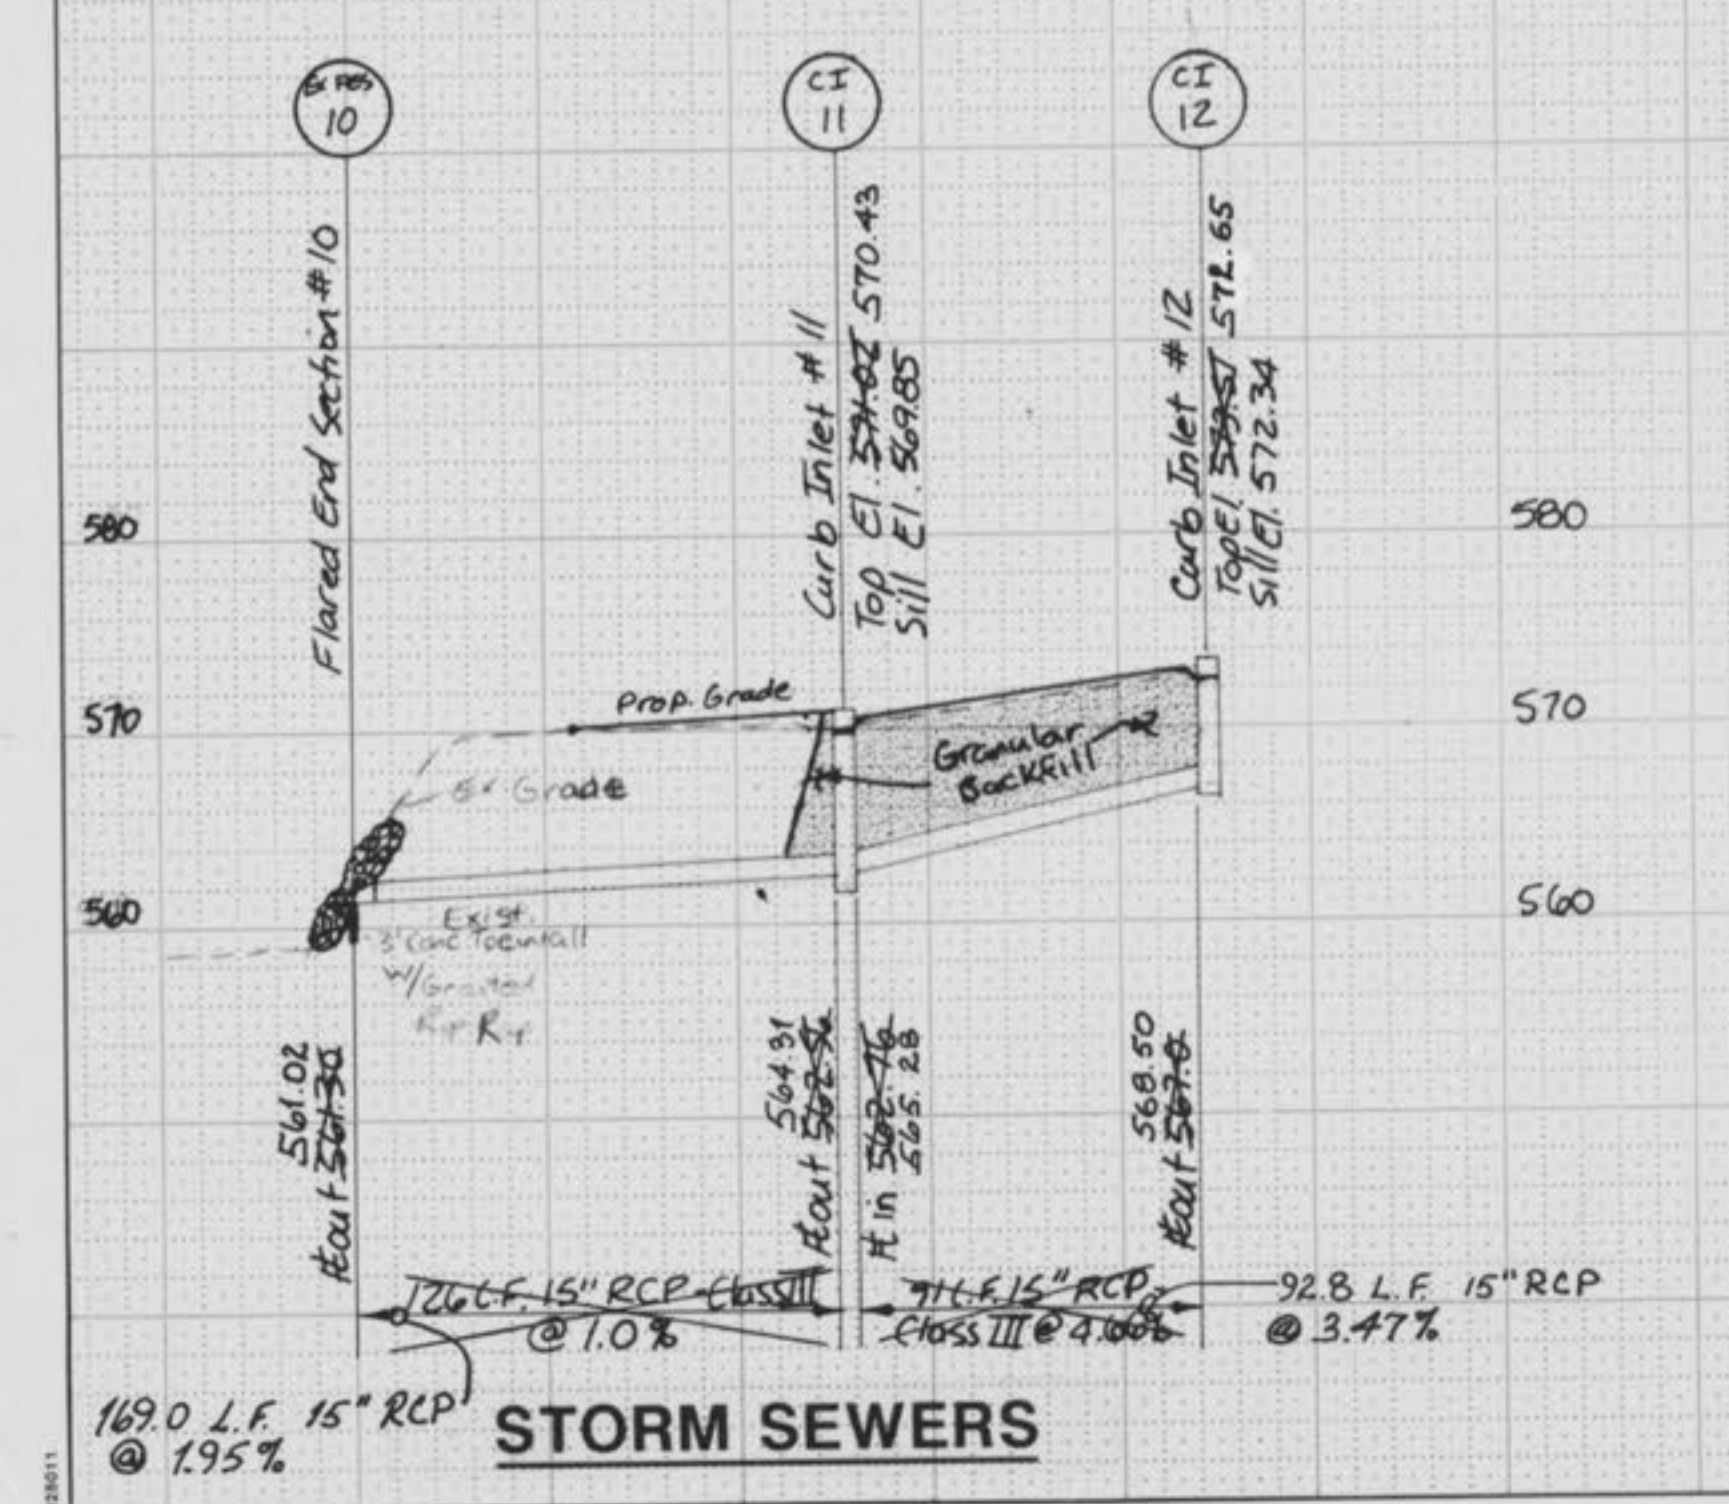 Ex FES
10
CI
11
CI
12
Flared End Section #10
Curb Inlet #11
Top El. 571.02 570.43
Sill El. 569.85
Curb Inlet #12
Top El. 573.57 572.65
Sill El. 572.34
580
580
570
570
560
560
Prop. Grade
Ex Grade
Granular
Backfill
Exist.
3' Conc Toewall
W/Grouted
Rip Rip
561.02
out 561.30
564.31
out 562.56
in 562.76
565.28
568.50
out 567.0
126 L.F. 15" RCP-Class III
@ 1.0%
91 L.F. 15" RCP
Class III @ 4.66%
92.8 L.F. 15" RCP
@ 3.47%
169.0 L.F. 15" RCP
@ 1.95%
STORM SEWERS